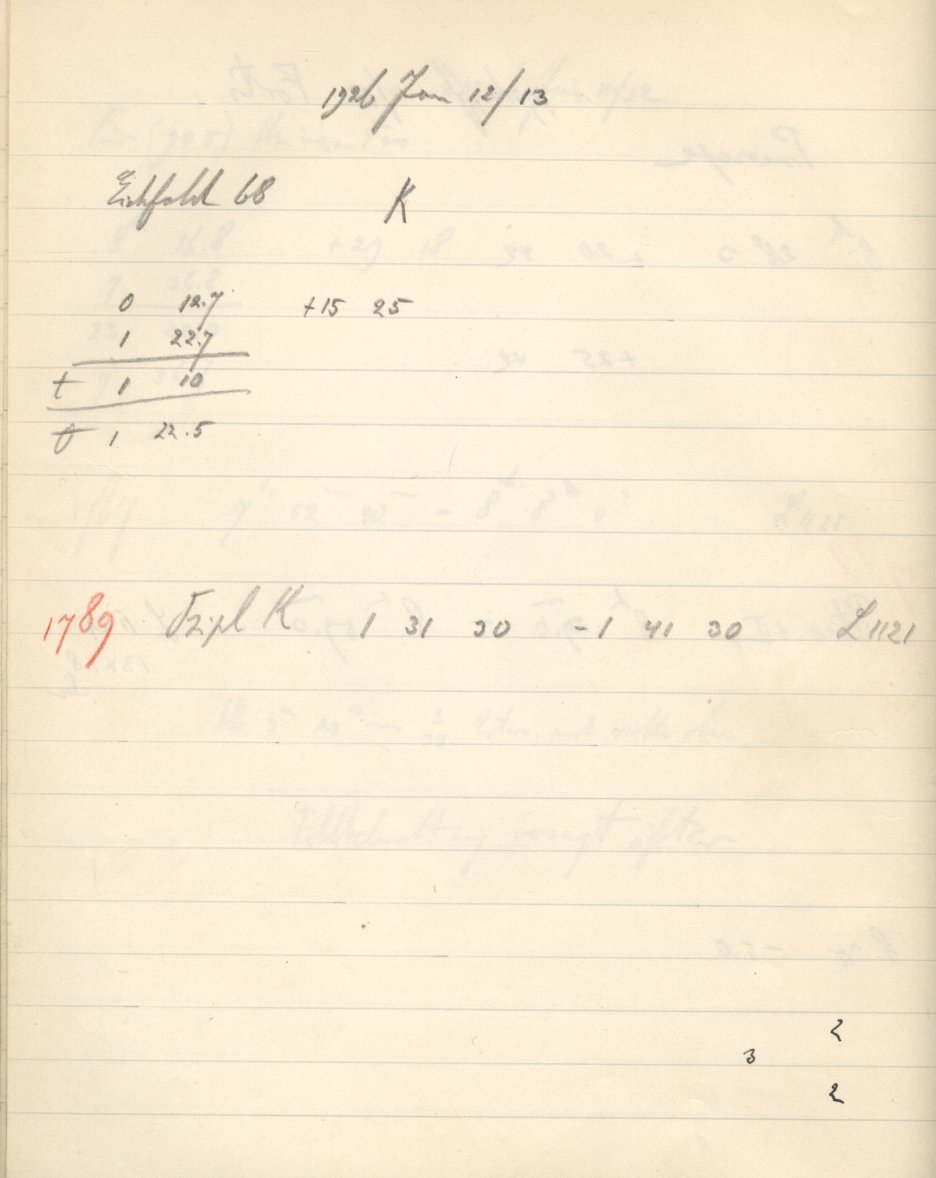 1926 Jan 12/13
Eichfeld 68 K
0 12.7 +15 25
1 22.7
t 1 10
θ 1 22.5
1789 Tripl K 1 31 30 - 1 41 30 L 1121
2
3
2